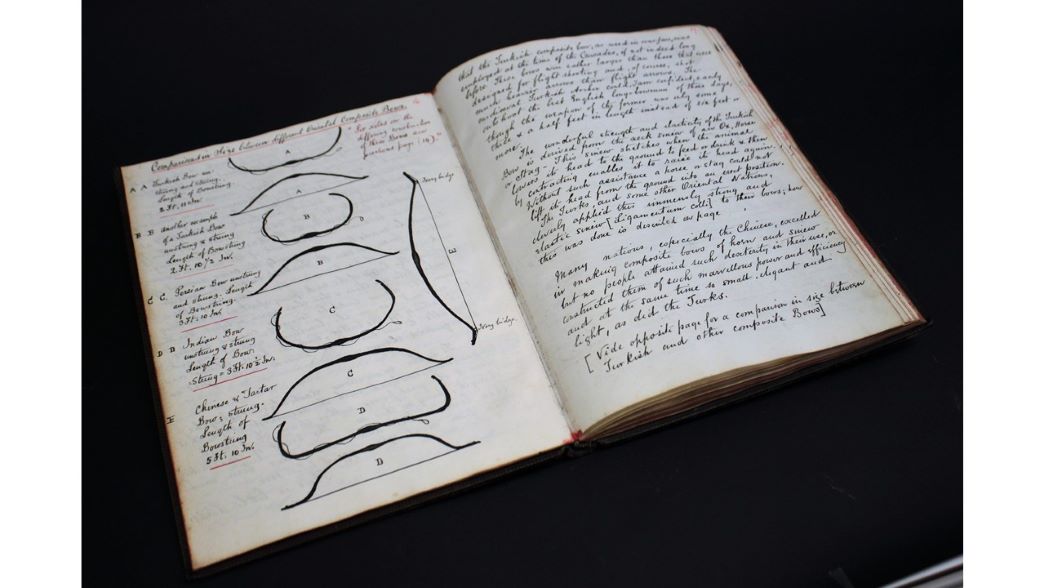 Comparison in Size between different Oriental Composite Bows.
"See notes on the
differing construction
of these Bows on
previous page (147)"
A A Turkish Bow un-
strung and strung.
Length of Bowstring
2 Ft. 11 In.
B B another example
of a Turkish Bow
unstrung & strung
Length of Bowstring
2 Ft. 10 1/2 In.
C C. Persian Bow unstrung
and strung. Length
of Bowstring
3 Ft. 10 In.
D D Indian Bow
unstrung & strung
Length of Bow
String = 3 Ft. 10 1/2 In.
E Chinese & Tartar
Bow; strung.
Length of
Bowstring
5 Ft. 10 In.
A
A
B
B
C
C
D
D
E
Ivory bridge.
Ivory bridge.
that the Turkish composite bow, as used in warfare, was
employed at the time of the Crusades, if not indeed long
before. These bows were rather larger than those that were
designed for flight-shooting and, of course, shot
much heavier arrows than flight arrows. The
mediæval Turkish archer could, I am confident, easily
outshoot the best English long-bowman of those days,
though the weapon of the former was only some
three & a half feet in length instead of six feet or
more.
The wonderful strength and elasticity of the Turkish
Bow is derived from the neck sinew of an Ox, Horse
or Stag. This sinew stretches when the animal
lowers its head to the ground to feed or drink & then
by contracting enables it to raise its head again.
Without such assistance a horse or stag could not
lift its head from the ground into an erect position.
The Turks, and some other Oriental Nations,
cleverly applied this immensely strong and
elastic sinew [ligamentum colli] to their bows; how
this was done is described on page
Many nations, especially the Chinese, excelled
in making composite bows of horn and sinew
but no people attained such dexterity in their use, or
constructed them of such marvellous power and efficiency
and at the same time so small, elegant and
light, as did the Turks.
[Vide opposite page for a comparison in size between
Turkish and other composite Bows]